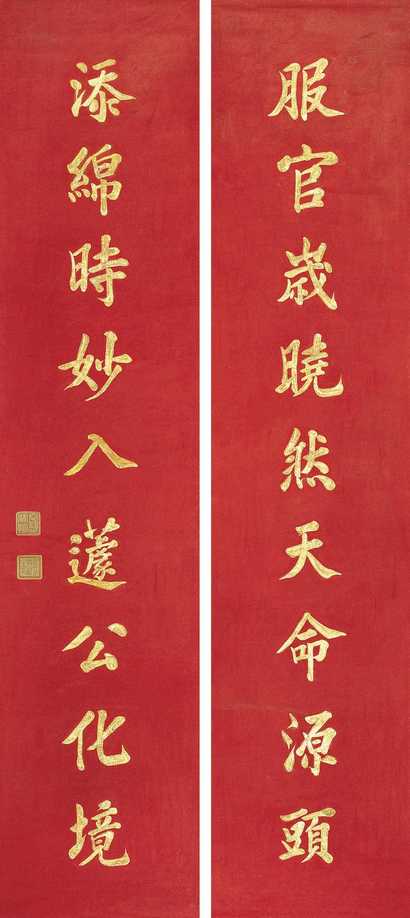 服官歲曉然天命源頭
添綿時妙入蘧公化境